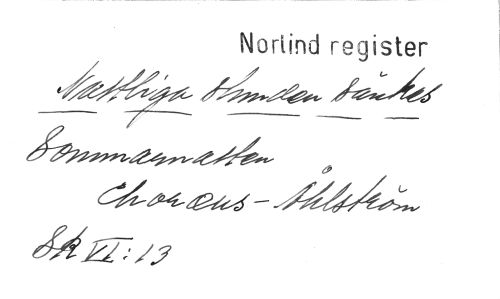 Norlind register
Nattliga stunden sänkes
Sommarnatten
Choræus - Åhlström
SR VI: 13